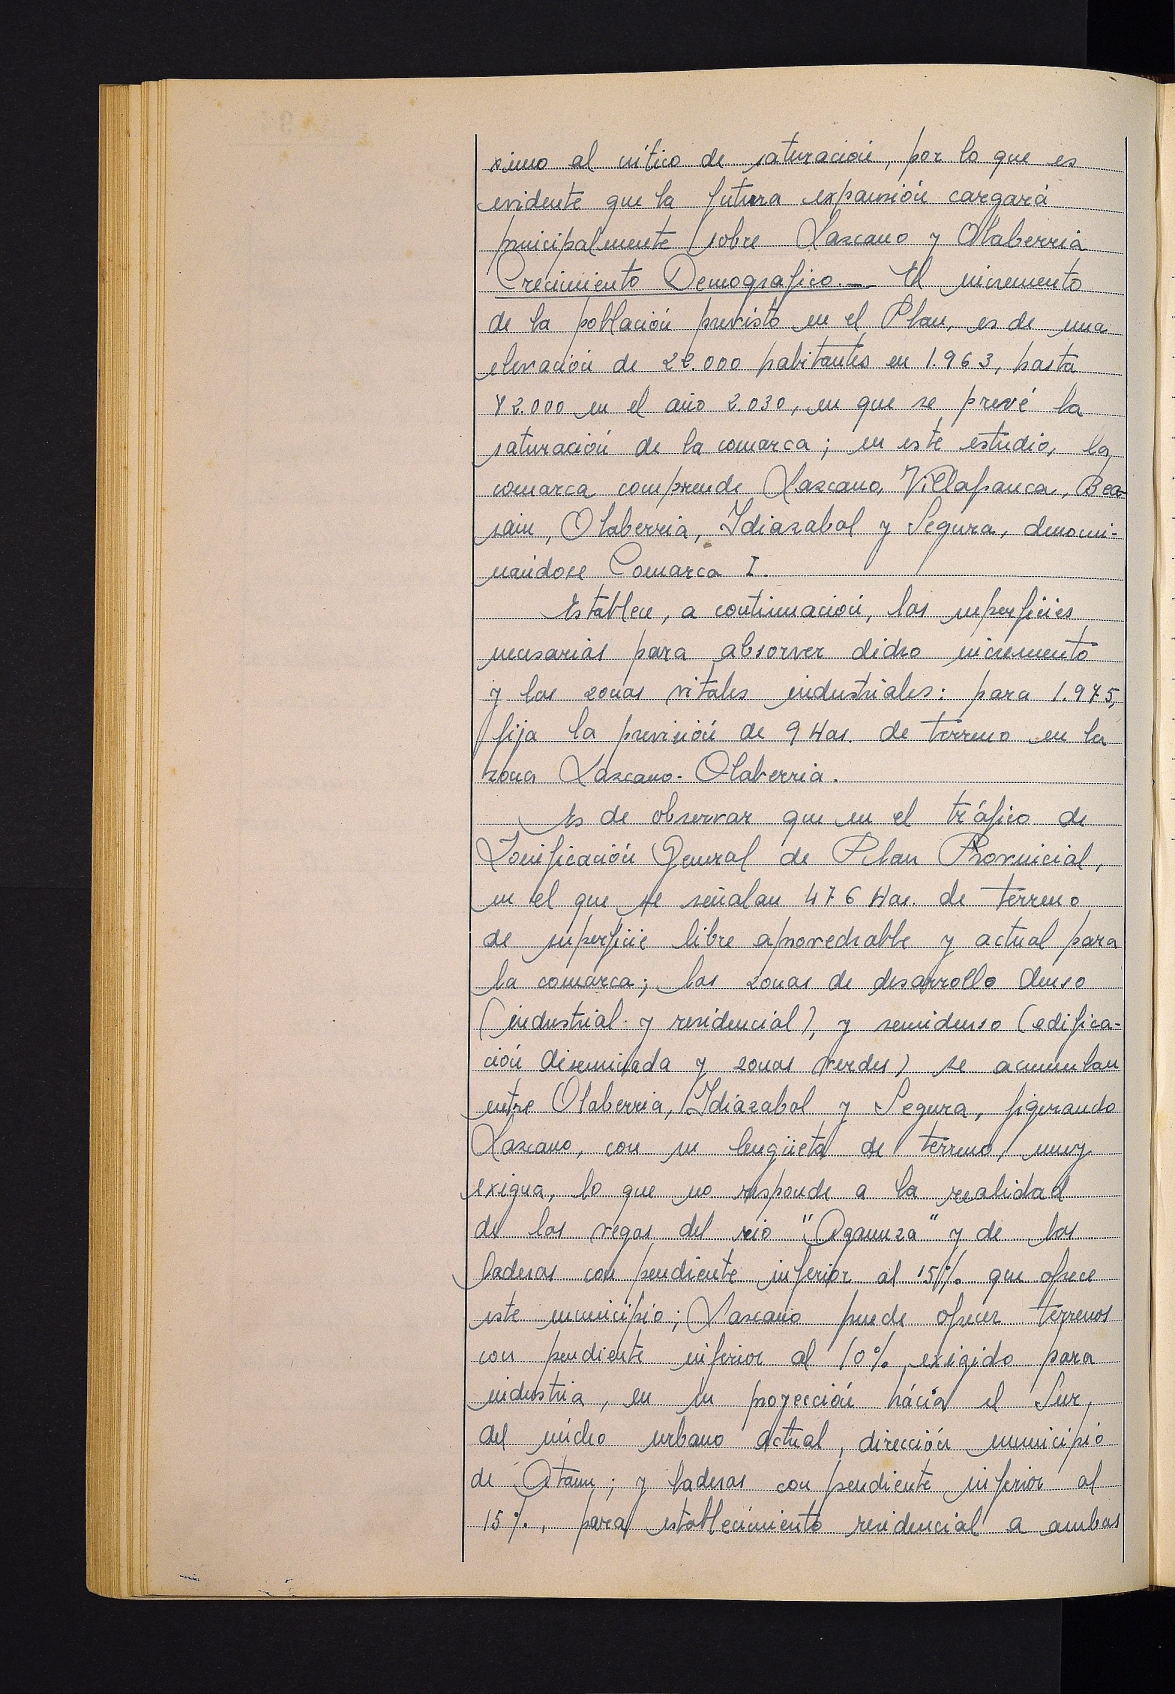 ximo al crítico de saturación, por lo que es
evidente que la futura expansión cargará
principalmente sobre Lazcano y Olaberria
Crecimiento Demografico.— El incremento
de la población previsto en el Plan, es de una
elevación de 22.000 habitantes en 1.963, hasta
72.000 en el año 2.030, en que se prevé la
saturación de la comarca; en este estudio, la
comarca comprende Lazcano, Villafranca, Bea-
sain, Olaberria, Idiazabal y Segura, denomi-
nándose Comarca I.
Establece, a continuación, las superficies
necesarias para absorver dicho incremento
y las zonas vitales industriales: para 1.975,
fija la previsión de 9 Has. de terreno en la
zona Lazcano-Olaberria.
Es de observar que en el tráfico de
Zonificación General de Plan Provincial,
en el que se señalan 476 Has. de terreno
de superficie libre aprovechable y actual para
la comarca; las zonas de desarrollo denso
(industrial y residencial), y semidenso (edifica-
ción diseminada y zonas verdes) se acumulan
entre Olaberria, Idiazabal y Segura, figurando
Lazcano, con su lengüeta de terreno, muy
exigua, lo que no responde a la realidad
de las vegas del rio "Agaunza" y de las
laderas con pendiente inferior al 15%. que ofrece
este municipio; Lazcano puede ofrecer terrenos
con pendiente inferior al 10%, exigido para
industria, en su proyección hácia el Sur,
del núcleo urbano actual, dirección municipio
de Ataun; y laderas con pendiente inferior al
15%., para establecimiento residencial a ambos